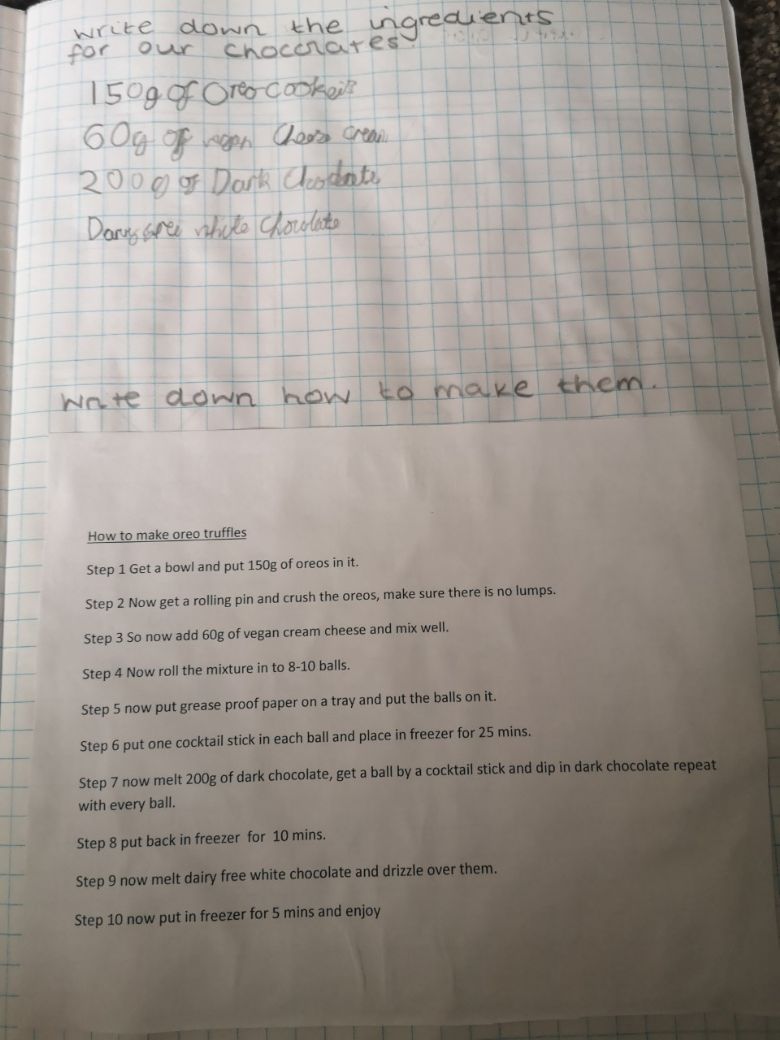 write down the ingredients
for our chocolates.
150g of Oreo Cookeis
60g of vegan Cheese Cream
200g of Dark Choclate
Dairy free white Chocolate
Write down how to make them.
How to make oreo truffles
Step 1 Get a bowl and put 150g of oreos in it.
Step 2 Now get a rolling pin and crush the oreos, make sure there is no lumps.
Step 3 So now add 60g of vegan cream cheese and mix well.
Step 4 Now roll the mixture in to 8-10 balls.
Step 5 now put grease proof paper on a tray and put the balls on it.
Step 6 put one cocktail stick in each ball and place in freezer for 25 mins.
Step 7 now melt 200g of dark chocolate, get a ball by a cocktail stick and dip in dark chocolate repeat
with every ball.
Step 8 put back in freezer for 10 mins.
Step 9 now melt dairy free white chocolate and drizzle over them.
Step 10 now put in freezer for 5 mins and enjoy